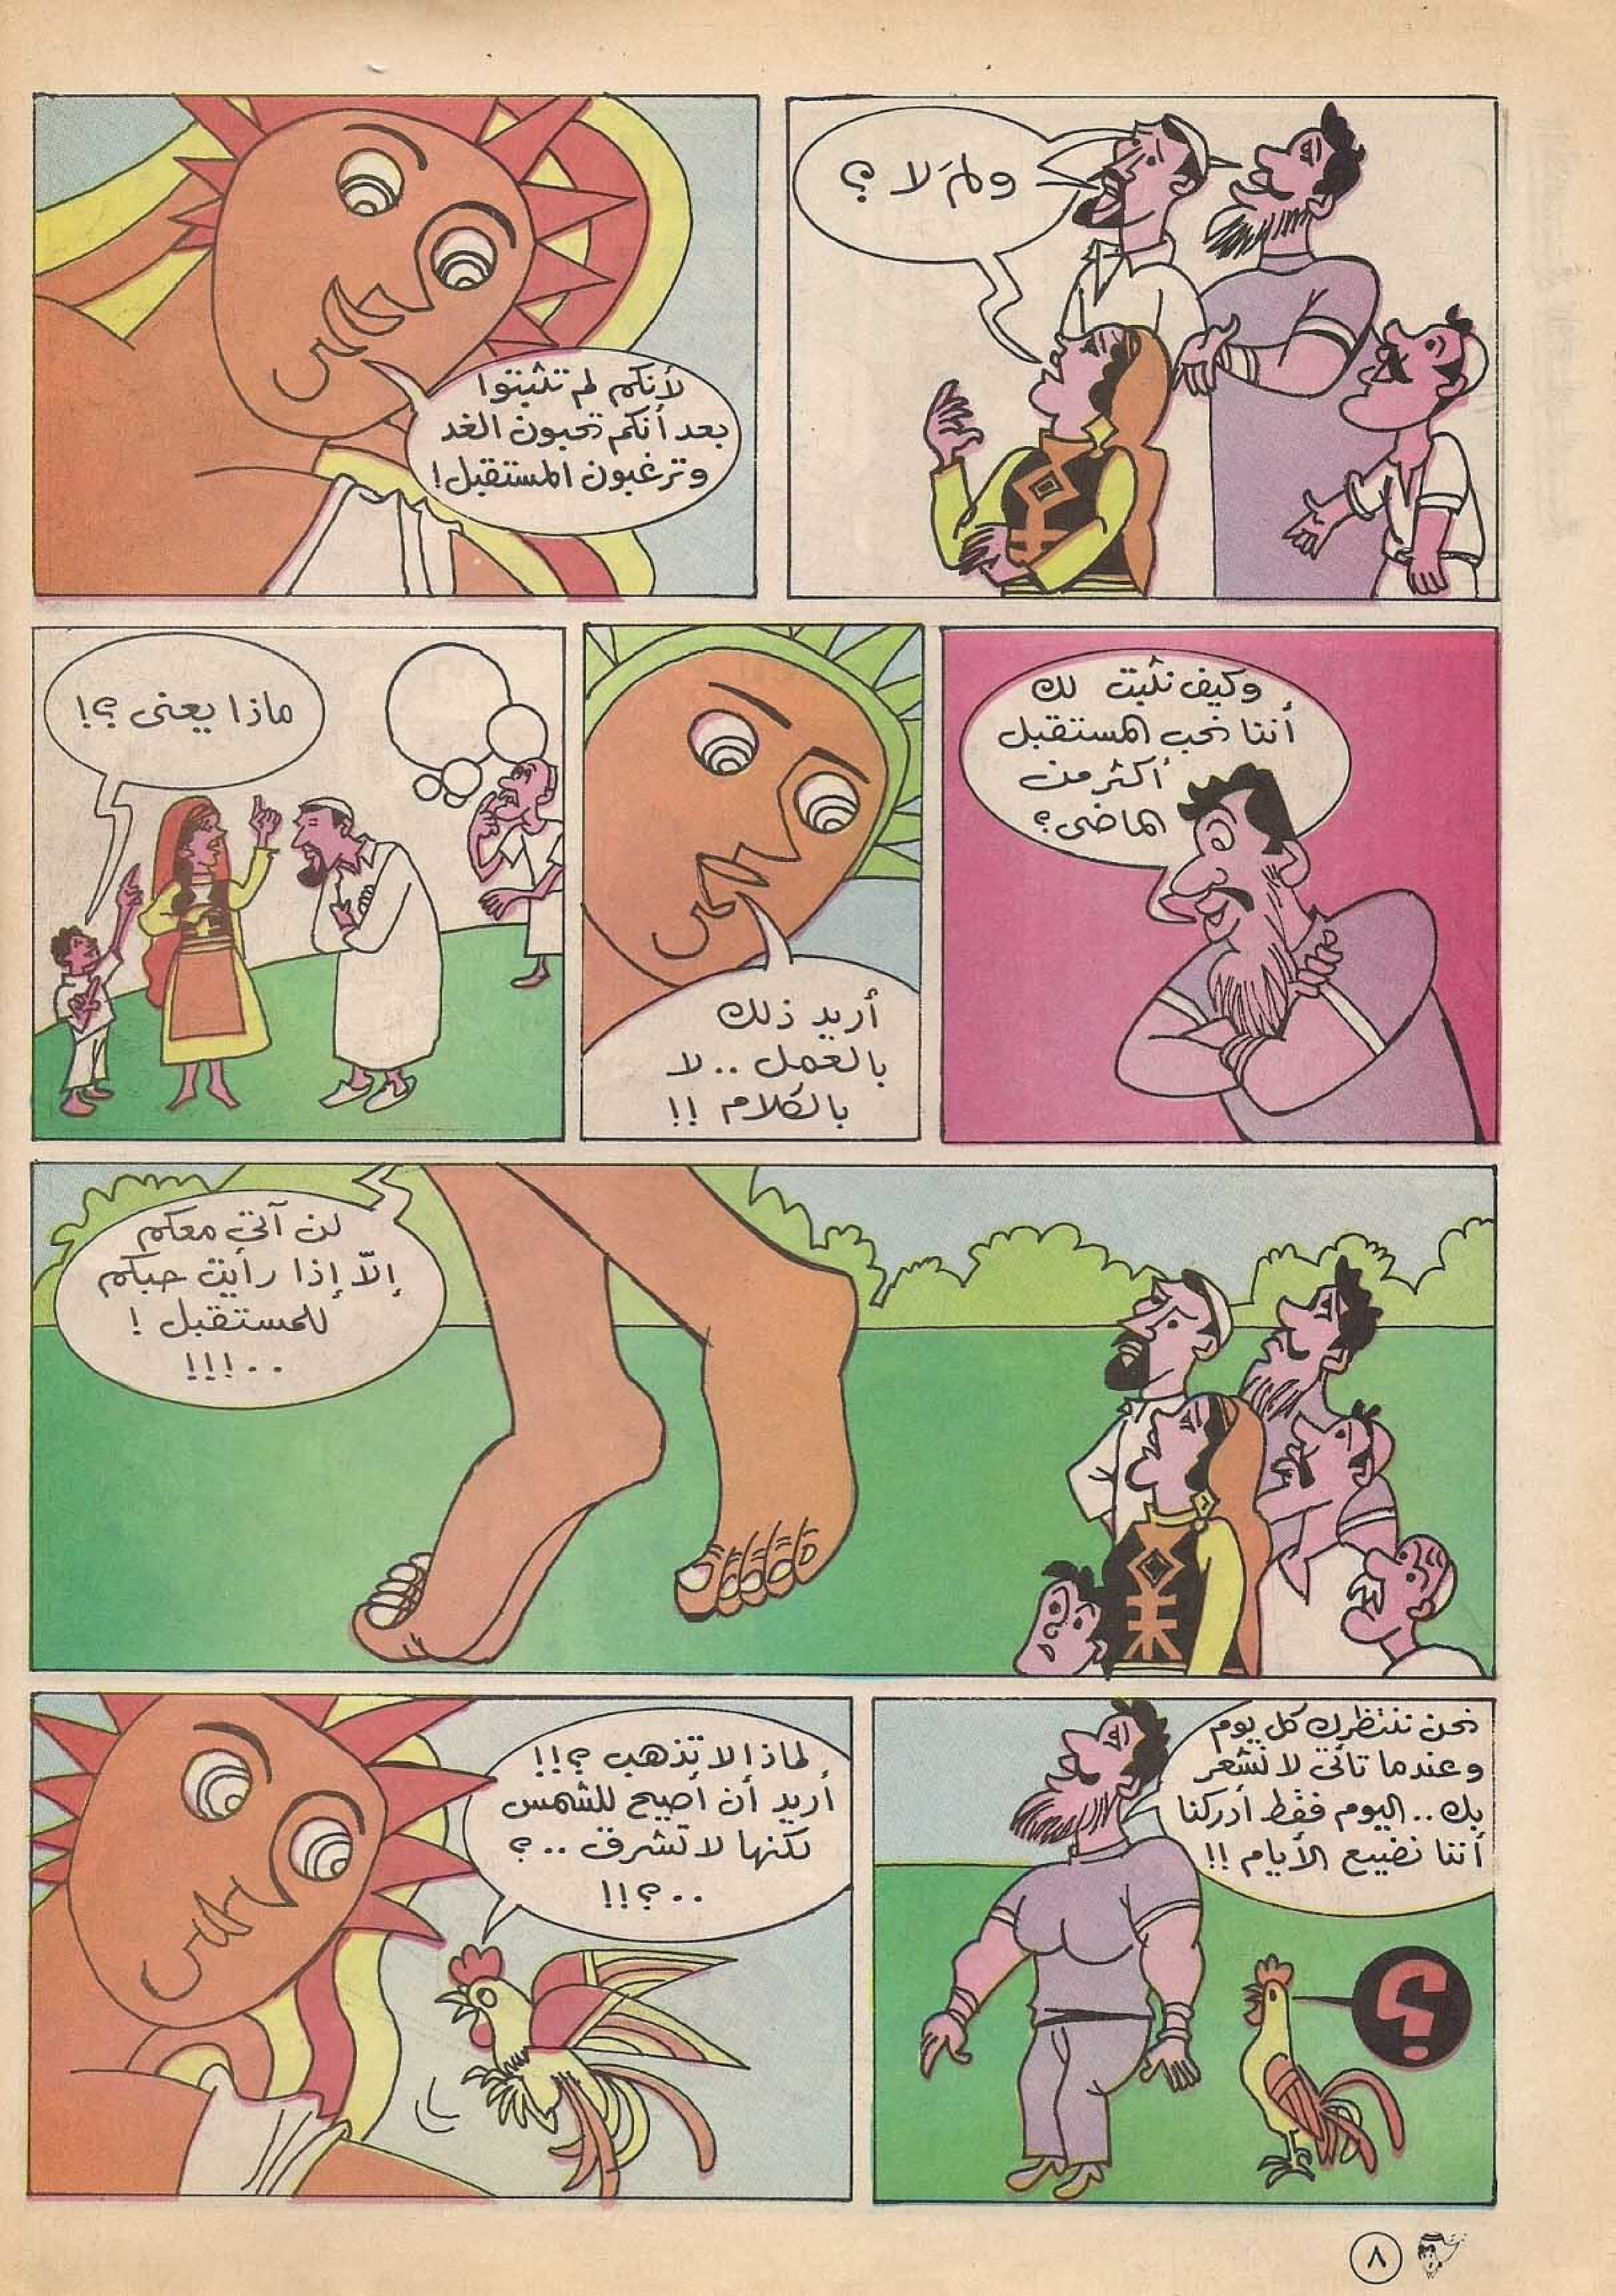 ولمَ لا ؟
لأنكم لم تثبتوا
بعد أنكم تحبون الغد
وترغبون المستقبل !
وكيف نثبت لك
أننا نحب المستقبل
أكثر من
الماضى ؟
أريد ذلك
بالعمل .. لا
بالكلام !!
ماذا يعنى ؟!
لن آتى معكم
إلاّ إذا رأيت حبكم
للمستقبل !
..!!!
نحن ننتظرك كل يوم
وعندما تأتى لا نشعر
بك .. اليوم فقط أدركنا
أننا نضيع الأيام !!
؟
لماذا لا تذهب ؟!!
أريد أن أصيح للشمس
لكنها لا تشرق .. ؟
..؟!!
٨